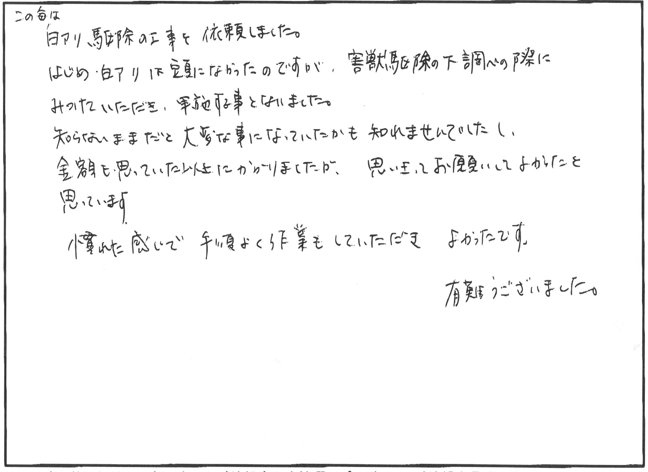 この毎は
白アリ駆除の工事を依頼しました。
はじめ、白アリは念頭になかったのですが、害獣駆除の下調べの際に
みつけていただき、実施する事となりました。
知らないままだと大変な事になっていたかも知れませんでしたし、
金額も思っていた以上にかかりましたが、思い立ってお願いしてよかったと
思っています
慣れた感じで手順よく作業もしていただき よかったです。
有難うございました。